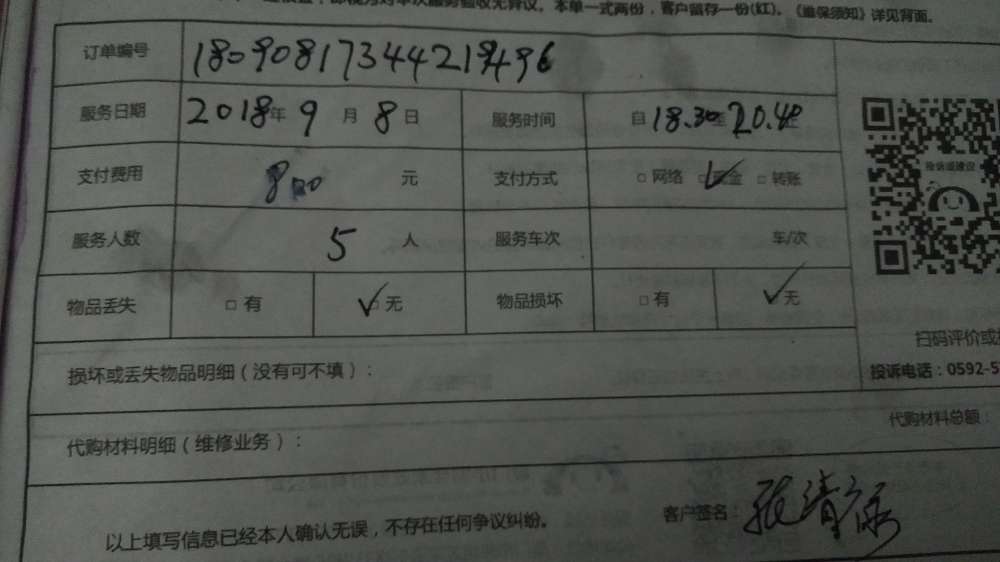 无异议。本单一式两份，客户留存一份(红)。《维保须知》详见背面。
订单编号
服务日期 2018年 9 月 8 日 服务时间 自 18.30至20.40
支付费用 800 元 支付方式 □ 网络 ☑现金 □ 转账
服务人数 5 人 服务车次 车/次
投诉或建议
物品丢失 □ 有 ☑ 无 物品损坏 □ 有 ☑ 无
扫码评价或
损坏或丢失物品明细（没有可不填）：
投诉电话：0592-5
代购材料总额：
代购材料明细（维修业务）：
客户签名：
以上填写信息已经本人确认无误，不存在任何争议纠纷。